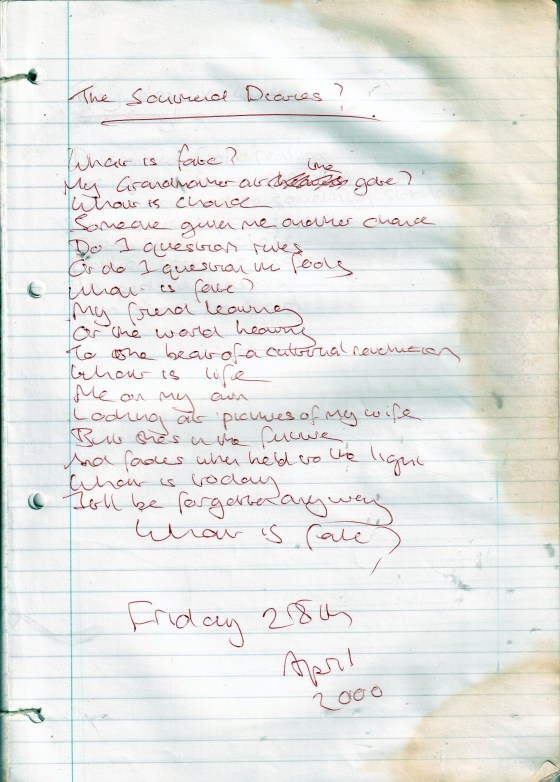 The Diaries?
What is fate?
My Grandmother at the gate?
What is chance
Someone give me another chance
Do I question rules
Or do I question the fools
What is fate?
My friend leaving
Or the world heaving
To the beat of a cultural revolution
What is life
Me on my own
Looking at pictures of my wife
But she's in the future
And fades when held to the light
What is today
It'll be forgotten anyway
What is fate?
Friday 28th
April
2000